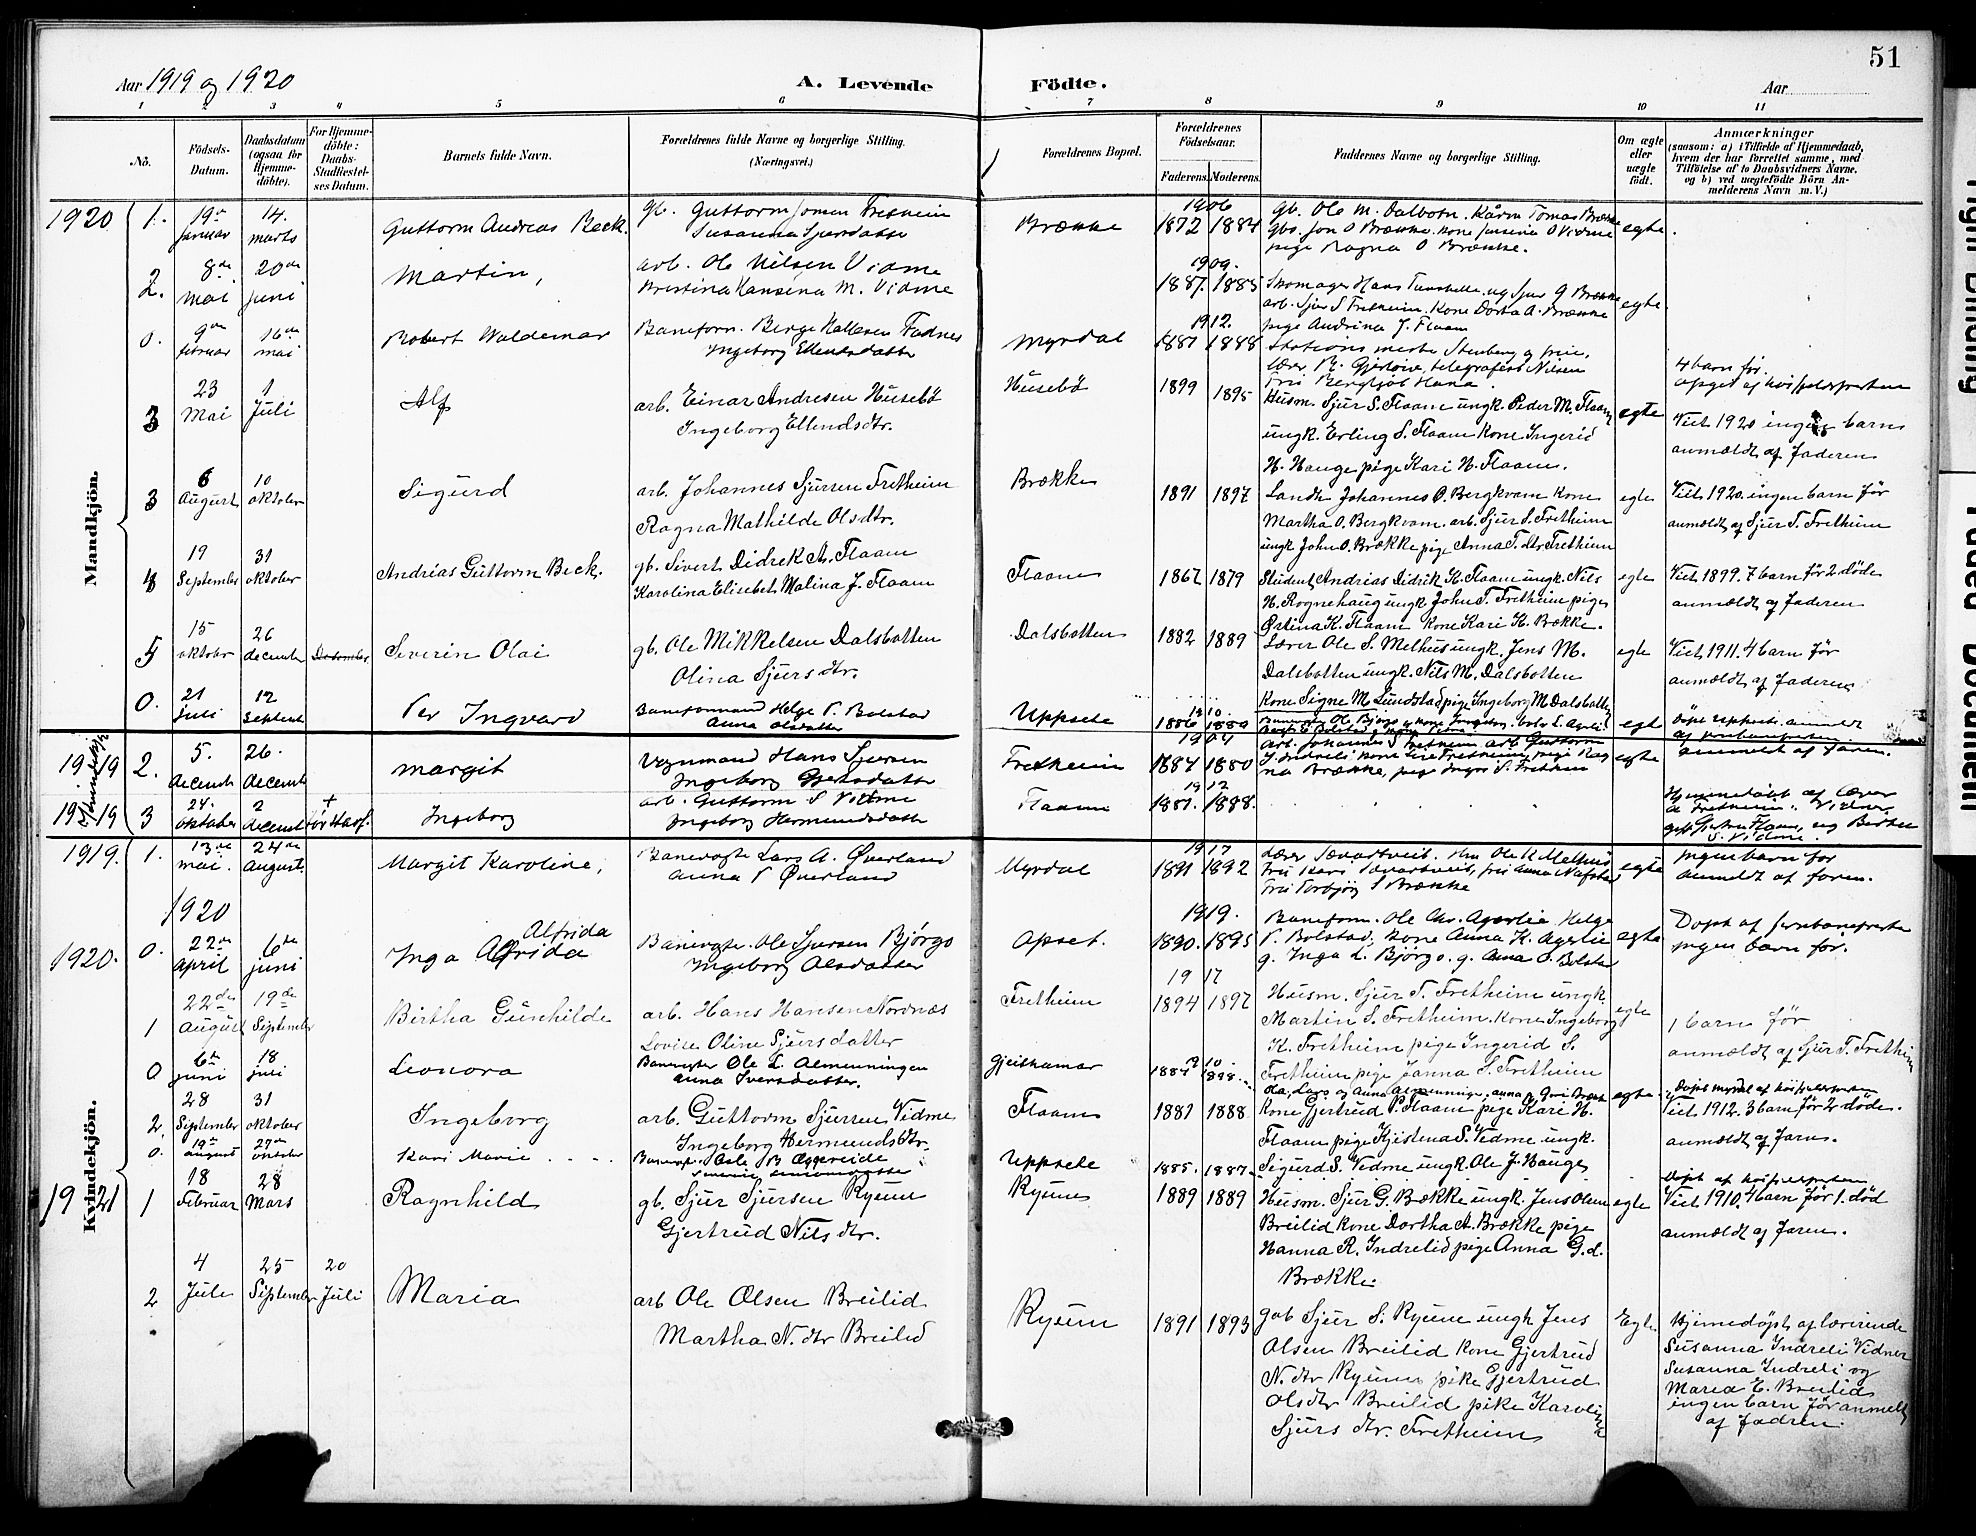 51
Aar 1919 og 1920
A. Levende Födte.
Aar
1 2 3 4 5 6 7 8 9 10 11
No.
Födsels-Datum.
Daabsdatum (ogsaa for Hjemmedöbte).
For Hjemmedöbte: Daabs-Stadfæstelses Datum.
Barnets fulde Navn.
Forældrenes fulde Navne og borgerlige Stilling. (Næringsvei.)
Forældrenes Bopæl.
Forældrenes Födselsaar.
Faderens. Moderens.
Faddernes Navne og borgerlige Stilling.
Om ægte eller uægte födt.
Anmærkninger (saasom: a) i Tilfælde af Hjemmedaab, hvem der har forrettet samme, med Tilföielse af to Daabsvidners Navne. og b) ved uægtefödte Börn Anmelderens Navn m. V.)
Mandkjön.
1920 1. 19de januar 14. marts Guttorm Andreas Beck. gb. Guttorm Jonsen Fresheim
Susanna Sjursdatter
Brække 1906 1872 1884 gb. Ole M. Dalbotn. Kårm Tomas Brække
gbs. Jon O Brække. Kone Jensina O Vidme
pige Ragna O Brække. egte.
2. 8de mai 20de juni Martin, arb. Ole Nilsen Vidme
Kristina Hansina M. Vidme
1909. 1887. 1885 Skomager Hans Tunshelle og Sjur G Brække
arb. Sjur S Fretheim, Kone Dorta A. Brække
pige Andrina J. Flaam egte.
0. 9de februar 16de mai Robert Waldemar Baneform. Berge Hallesen Fadnes
Ingeborg Ellendsdatter
Myrdal 1912. 1887 1888 Stations mester Stenberg og frue,
lærer R. Gjerløiv, telegrafist Nilsen
Frü Bergljot Hana.
4 barn før.
3 23 Mai 1 Juli Alf arb. Einar Andresen Hüsebö
Ingeborg Ellendsdtr.
Hüsebö 1899 1895 Husm. Sjur S. Flaam ungk. Peder M. Flaam
ungk. Erling S. Flaam Kone Ingerid
H. Hauge pige Kari H. Flaam. egte
Viet 1920 ingen barn
anmældt af faderen
3 6 Augurt 10 oktober Sigurd arb. Johannes Sjursen Fretheim
Ragna Mathilde Olsdtr.
Brække 1891 1897 Landh. Johannes O. Bergkvam Kone
Martha O. Bergkvam. arb. Sjur S. Fretheim
ungk John O. Brække pige Anna T. dtr Fretheim egte
Viet 1920. ingen barn før
anmældt af Sjur T. Fretheim
4 19 September 31 oktober Andrias Güttorm Beck. gb. Sivert Didrek A. Flaam
Karolina Elisebet Malina J. Flaam
Flaam 1867 1879 Student Andrias Didrik K. Flaam ungk. Nils
H. Rognehaug ungk John T. Fretheim pige
Ørtina K. Flaam Kone Kari K. Brække. egte
Viet 1899. 7 barn før 2 døde
anmældt af faderen
5 15 oktober 26 decembr Desember Severin Olai gb. Ole Mikkelsen Dalsbotten
Olina Sjursdtr.
Dalsbotten 1882 1889 Lærer Ole S. Melhus ungk. Jens M.
Dalsbotten ungk. Nils M. Dalsbotten
Kone Signe M Lundstad pige Ingeborg M Dalsbotten egte
Viet 1911. 4 barn før
anmældt af faderen
0. 21 juli 12 Septembr Per Ingvard Baneformand Helge P. Bolstad
Anna Olsdatter
Uppsete 1910. 1886 1880 egte
1919 2. 5. decembr 26. decembr Margit Vognmand Hans Sjursen
Ingeborg Gjertsdatter
Fretheim 1904 1884 1880 arb. Johannes S Fretheim arb Guttorm
na Brække, pige Inger S. Fretheim egte
anmeldt af faren.
1919 3 24. oktober 2 decembr Ingeborg arb. Guttorm S Vidme
Ingeborg Hermundsdatter
Flaam 1912 1887. 1888.
Hjemmedøbt af lærer
S. Vidme.
Kvindekjön.
1919. 1. 13de mai. 24de august. Margit Karoline, Banevogter Lars A. Øverland
Anna P Øverland
Myrdal 1917 1891 1892 Lærer Sævartveit. Hm Ole K Melhus
Frü Kari Sævartveit, frü Anna Nafstad
Frü Torbjør S Brække egte
Ingen barn før
anmeldt af faren.
1920
1920. 0. 22de april 6te juni Inga Alfrida Alfrida Banevogter Ole Sjursen Bjørgo
Ingeborg Olsdatter
Opset. 1919. 1890. 1895 Baneform. Ole Chr. Agerlie Helge
P. Bolstad, Kone Anna K. Agerlie
g. Inga L. Bjørgo. g. Anna O. Bolstad egte
Døpt af jernbanepresten
Ingen barn før.
1 22de August 19de September Birtha Günhilde arb. Hans Hansen Nordnæs
Lovise Oline Sjursdatter
Fretheim 1917 1894 1897 Husm. Sjur T. Fretheim ungk
Martin S. Fretheim. Kone Ingeborg
K. Fretheim pige Ingerid S.
Fretheim pige Janna S. Fretheim egte
1 barn før
anmældt af Sjur T. Fretheim
0 6te juni 18 juli Leonora Banevogter Ole L. Almenningen
Anna Iversdatter.
Gjeithamar 1910 1884 1888. egte
2. 28 September 31 oktober Ingeborg arb. Güttorm Sjursen Vidme
Ingeborg Hermundsdtr.
Flaam 1887 1888 Kone Gjertrud P. Flaam pige Kari H.
Flaam pige Kjistena S. Vidme ungk.
Sigurd S. Vidme ungk. Ole J. Hauge
Viet 1912. 3 barn før 2 døde.
anmældt af faren.
0. 19de august 27de oktober Kari Marie
Uppsete 1885. 1887.
1921 1 18 Februar 28 Mars Ragnhild gb. Sjur Sjursen Ryum
Gjertrud Nilsdtr.
Ryum 1889 1889 Husm. Sjur G. Brække ungk. Jens Olsen
Breilid Kone Dortha A. Brække pige
Hanna R. Indrelid pige Anna G.d.
Brække. egte
Viet 1910. 4 barn før 1. død
anmældt af faren.
2 4 Jule 25 September 20 Juli Maria arb Ole Olsen Breilid
Martha N. dtr Breilid
Ryum 1891 1893 gab Sjur S. Ryum ungk Jens
Olsen Breilid Kone Gjertrud
N. dtr Ryum pike Gjertrud
Olsdtr Breilid pike Karoline
Sjurs dtr. Fretheim Egte
Hjemedøpt af lærerinde
Susanna Indreli Vidner
Susanna Indreli og
Maria E. Breilid
ingen barn før anmelt
af faderen.